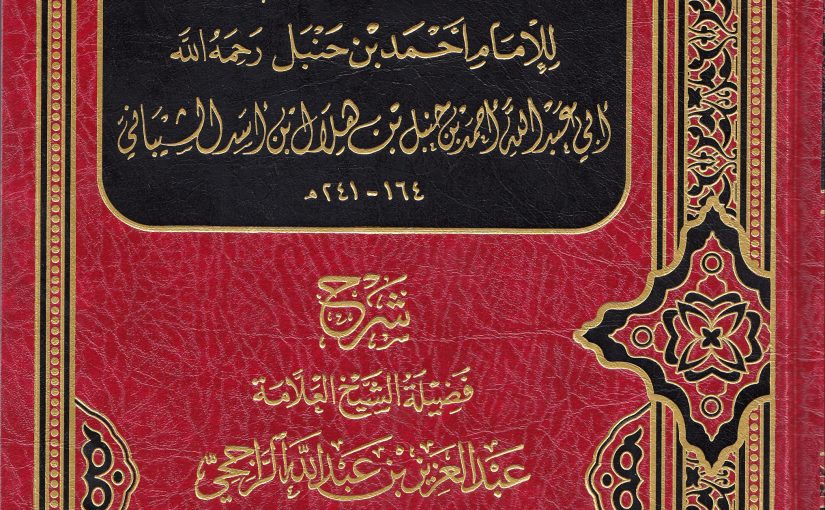 لِلْإِمَامِ أَحْمَدَ بْنِ حَنْبَلٍ رَحِمَهُ اللهُ
أبي عبد الله أحمد بن حنبل بن هلال بن أسد الشيباني
١٦٤ - ٢٤١ هـ
شَرْح
فَضِيلَةُ الشَّيْخِ العَلَّامَةِ
عَبْدُ العَزِيزِ بْنُ عَبْدِ اللهِ الرَّاجِحِيّ